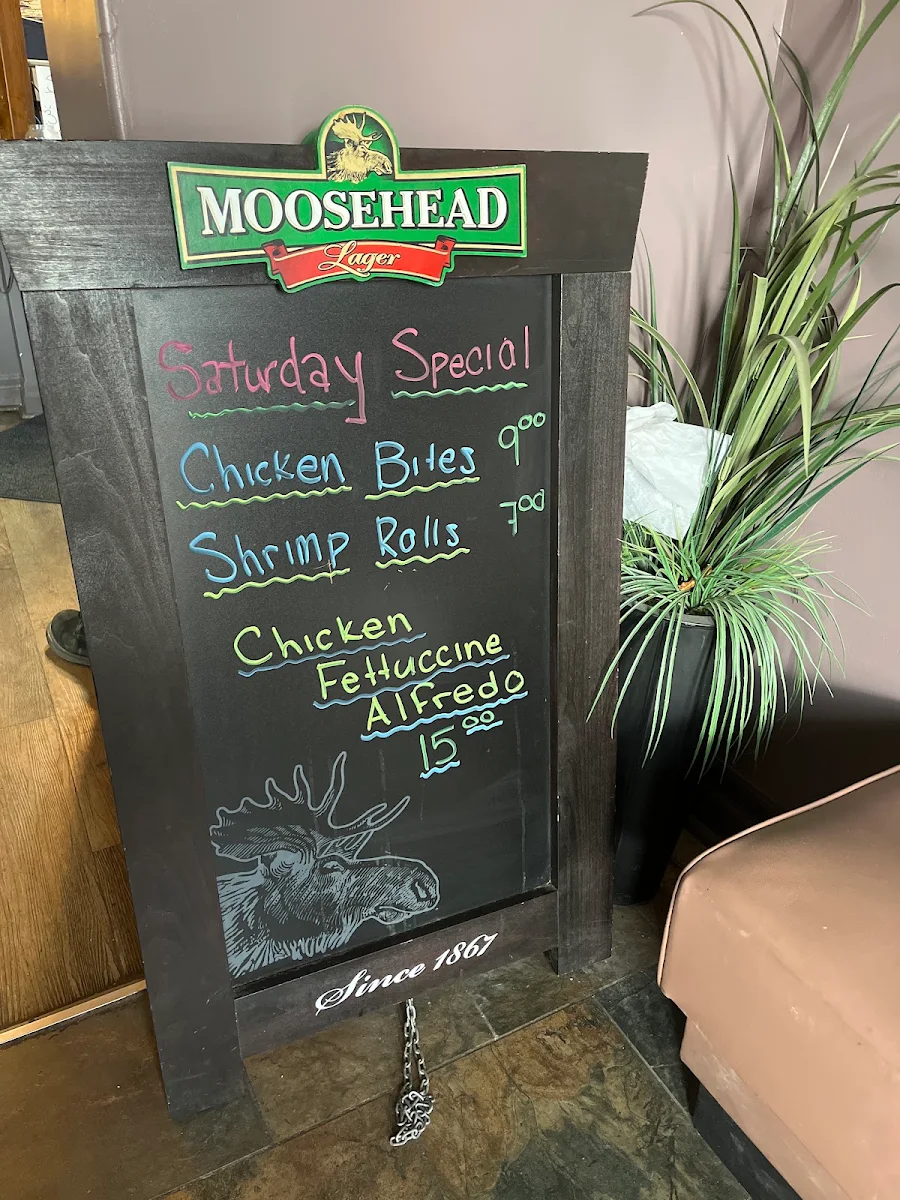 MOOSEHEAD
Lager
Saturday Special
Chicken Bites 9.00
Shrimp Rolls 7.00
Chicken
Fettuccine
Alfredo
15.00
Since 1867